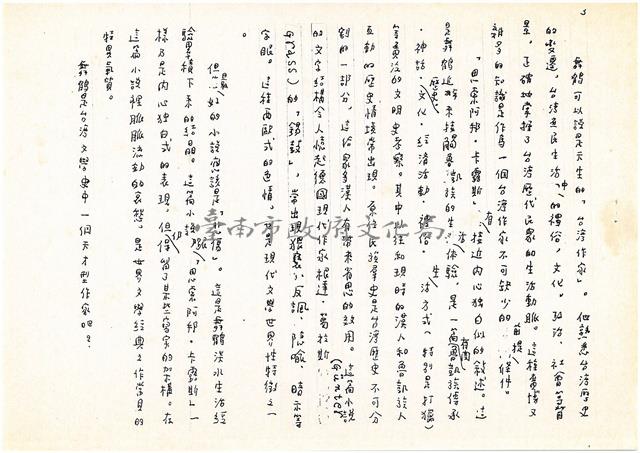 5
舞鶴可以說是天生的「台灣作家」。他熟悉台灣歷史
的變遷，台灣庶民生活中的禮俗，文化，政治，社會等背
景，正確地掌握了台灣歷代民眾的生活動脈。這種廣博又
親身的知識是作為一個台灣作家不可缺少的前提條件。
「思索阿邦・卡露斯」有接近內心獨白似的敘述。這
是舞鶴近時來接觸魯凱族的生活體驗，是一篇有關魯凱族傳承
、神話、歷史、文化、經濟活動、禮俗、生活方式（特別是打獵）
等廣泛的文明史考察。其中，往昔和現時的漢人和魯凱族人
互動的歷史情境常出現。原住民族群史是台灣歷史不可分
割的一部分，這給眾多漢人有帶來省思的效用。這篇小說
的文字結構令人憶起德國現代作家根達・葛拉斯（Günter
Grass）的「錫鼓」，常出現猥褻、反諷，隱喻，暗示等
字眼。這種西歐式的色情，也是現代文學世界性特徵之一
。
但最好的小說應該是「 」。這是舞鶴淡水生活經
驗累積下來的結晶。這篇小說跟「思索阿邦・卡露斯」一
樣乃是內心獨白式的表現，但仍保留了某些寫實的架構。在
這篇小說裡脈脈流動的哀愁，是世界文學經典之作常見的
特異氣質。
舞鶴是台灣文學史中一個天才型作家吧？
臺南市政府文化局